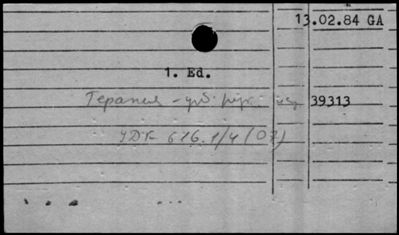 13.02.84 GA
1. Ed.
Терапия - уч. 39313
УДК 616.1/4 (07)